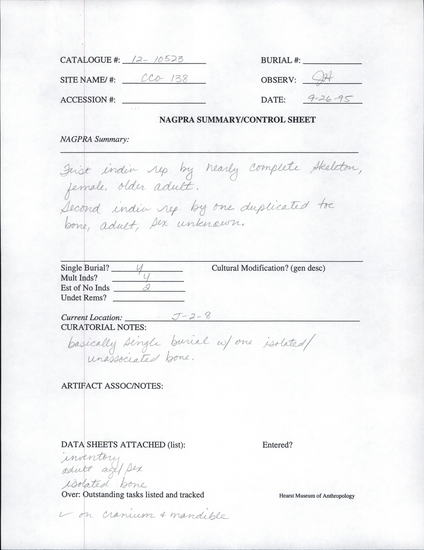 CATALOGUE #: 12-10523 BURIAL #:
SITE NAME/ #: CCO 138 OBSERV: JH
ACCESSION #: DATE: 9-26-95
NAGPRA SUMMARY/CONTROL SHEET
NAGPRA Summary:
First indiv rep by nearly complete skeleton,
female, older adult.
Second indiv rep by one duplicated toe
bone, adult, sex unknown.
Single Burial? y Cultural Modification? (gen desc)
Mult Inds? y
Est of No Inds 2
Undet Rems?
Current Location: J-2-8
CURATORIAL NOTES:
basically single burial w/ one isolated/
unassociated bone.
ARTIFACT ASSOC/NOTES:
DATA SHEETS ATTACHED (list): Entered?
inventory
adult age/sex
isolated bone
Over: Outstanding tasks listed and tracked Hearst Museum of Anthropology
✓ on cranium & mandible